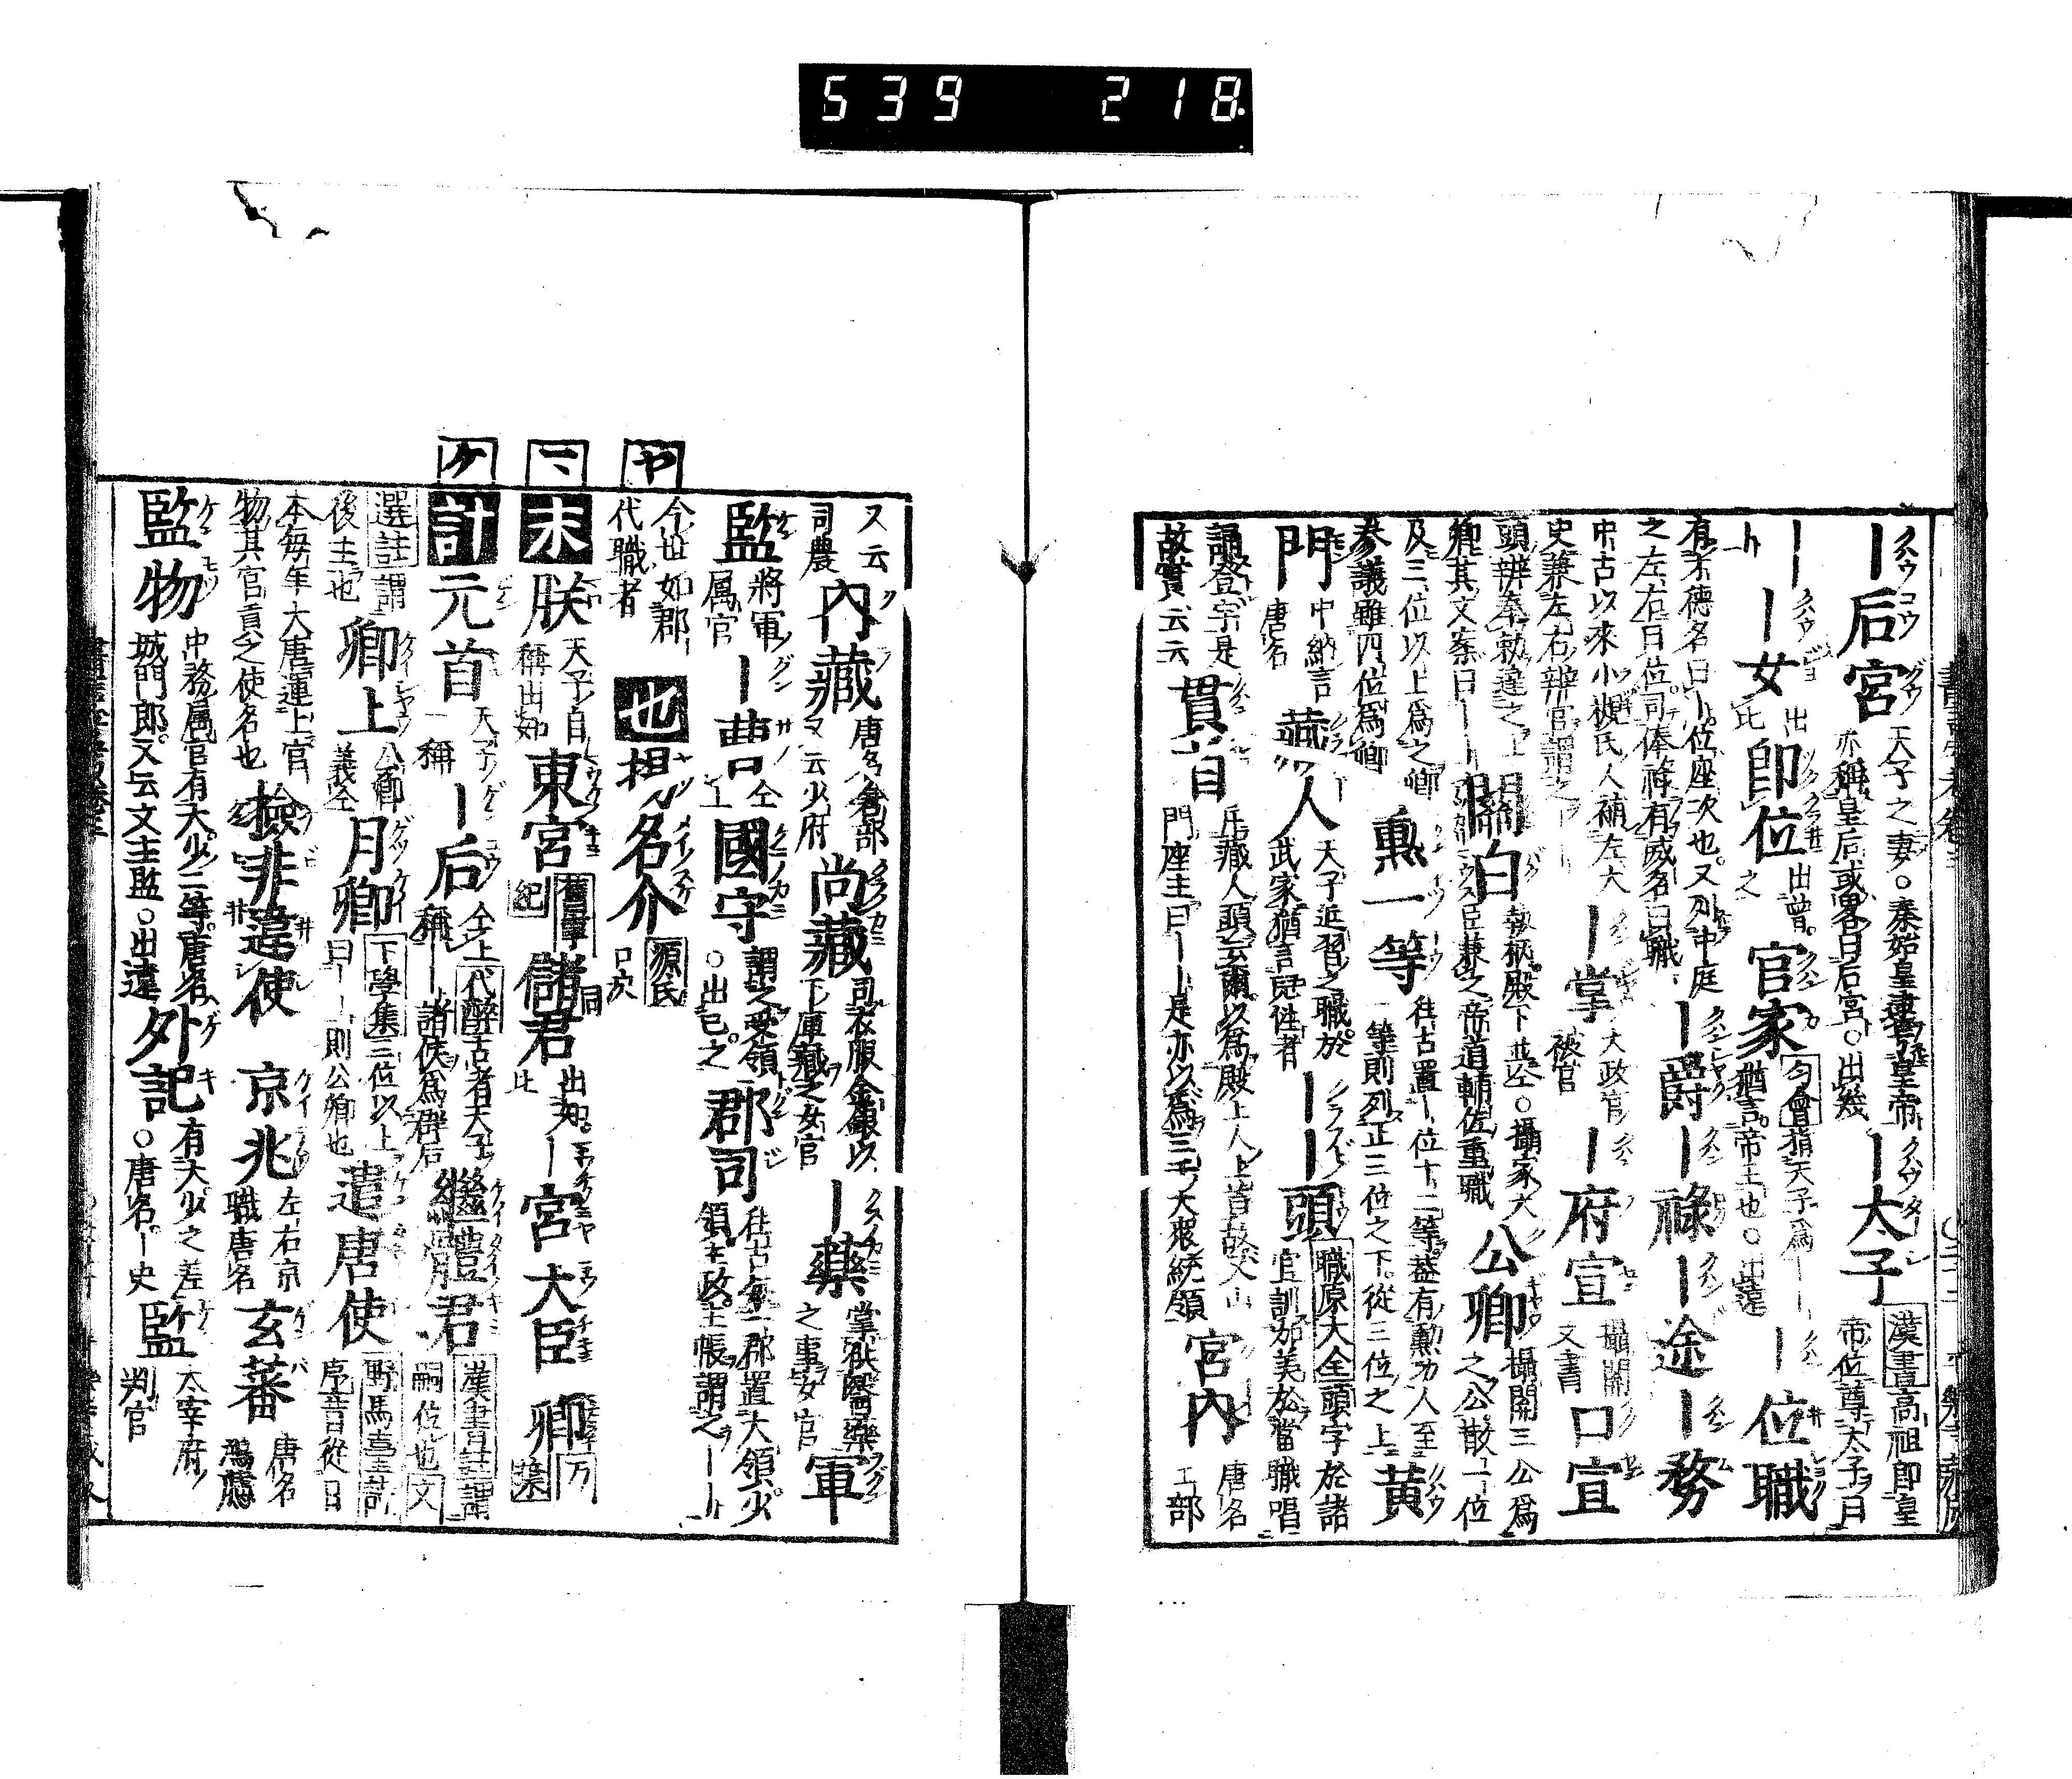 539 218
｜后宮 天子之妻○秦始皇建皇帝 亦稱皇后或畧曰后宮○出幾 ｜太子 漢書高祖即皇帝位尊太子曰
｜｜ ｜女 出比 即位 出曾之 官家 匀會指天子爲｜｜猶言帝王也○出遠 ｜位職
有才德名曰｜位座次也又列中庭之左右曰位司俸祿有威名曰職 ｜爵 ｜祿 ｜途 ｜務
中古以來小槻氏人補左大史兼左右辨官謂之 ｜掌 大政官被官 ｜府宣 攝關又書 口宣
頭辨奉勅達之上卿其文案曰｜｜ 關白 執柄殿下並仝○攝家大臣兼之帝道輔佐重職 公卿 攝關三公爲之公散一位
及三位以上爲之卿參議雖四位爲卿 勲一等 往古置｜位十二等蓋有勲功人至一等則列正三位之下從三位之上 黄
門 中納言唐名 藏人 天子近習之職於武家猶言兒性者 ｜｜頭 職原大全頭字於諸官訓加美於當職唱
誦登字是故實云云 貫首 斥藏人頭云爾以爲殿上人上首故又山門座主曰｜｜是亦以爲三千大衆統領 宮内 唐名工部
又云司農 内藏 唐名倉部又云少府 尚藏 司衣服金銀以下庫藏之女官 ｜藥 掌供醫藥之事女官 軍
監 將軍属官 ｜曹 仝上 國守 謂之受領○出已之 郡司 往古毎一郡置大領少領主政主帳謂之｜｜
今世如郡代職者 也 揚名介 源氏口訣
ヤ
マ
末 朕 天子自稱出知 東宮 舊事紀 儲君 仝出知比 ｜宮 大臣 卿 万葉
ケ
計 元首 天子一稱 ｜后 仝上代醉古者天子稱｜｜諸侯爲群后 繼體君 漢書註謂嗣位也文
選註謂後主也 卿上 公卿義仝 月卿 下學集三位以上曰｜｜則公卿也 遣唐使 野馬臺詩序昔從日
本毎年大唐運上官物其官貢之使名也 檢非違使 京兆 左右京職唐名 玄蕃 唐名鴻臚
監物 中務属官有大少二等唐名城門郎又云文主監○出遠 外記 有大少之差○唐名｜史 監 太宰府判官